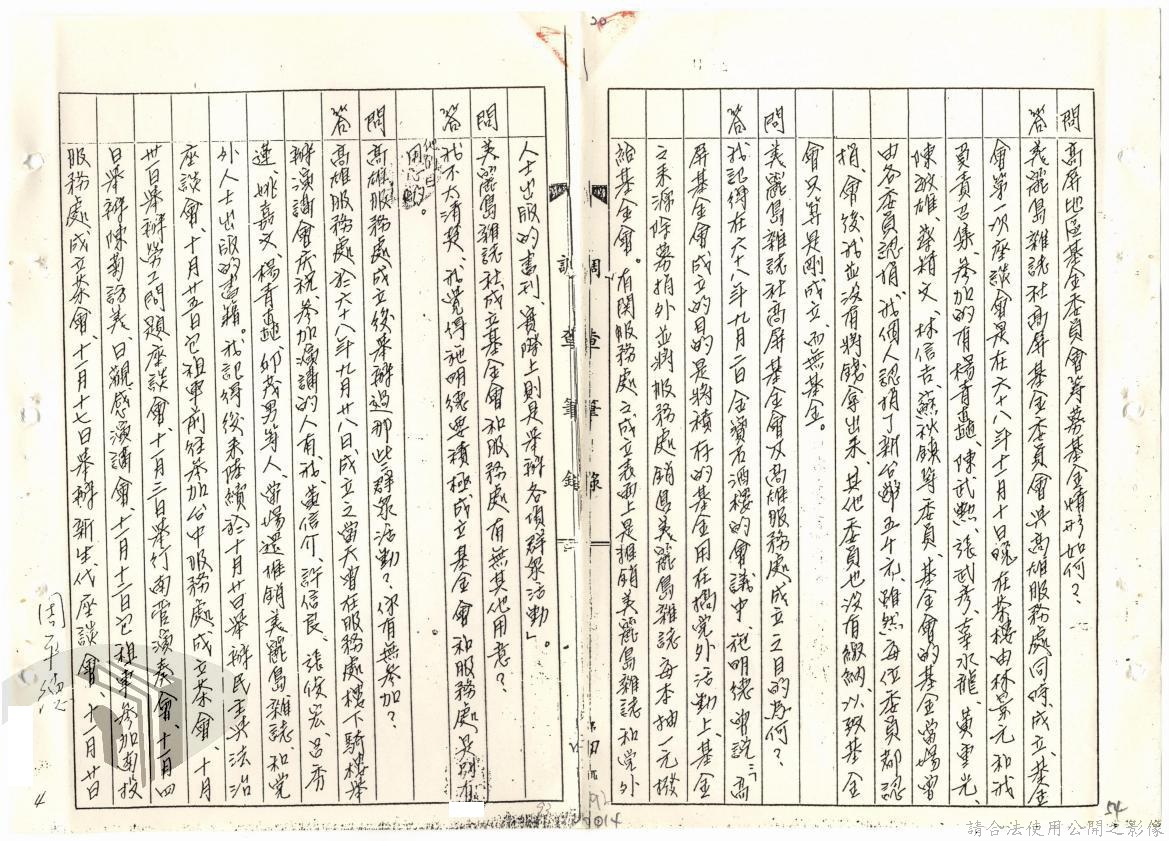 問 高屏地區基金委員會籌募基金情形如何？
答 美麗島雜誌社高屏基金委員會與高雄服務處同時成立、基金
會第一次座談會是在六十八年十月十日晚在茶樓由林景元和我
負責召集、參加的有楊青矗、陳武勲、張武秀、辜水龍、黃重光、
陳啟雄、蔡精文、林信吉、蘇秋鎮等委員、基金會的基金當場曾
由各委員認捐、我個人認捐了新台幣五千元、雖然每位委員都認
捐、會後我並沒有將錢拿出來、其他委員也沒有繳納、以致基金
會只算是剛成立、而無基金。
問 美麗島雜誌社高屏基金會及高雄服務處成立之目的為何？
答 我記得在六十八年九月二日金寶石酒樓的會議中、施明德曾說：「高
屏基金會成立的目的是將積存的基金用在搞党外活動上、基金
之來源除募捐外並將服務處銷售美麗島雜誌每本抽一元撥
給基金會。有関服務處之成立表面上是推銷美麗島雜誌和党外
調查筆錄
人士出版的書刊、實際上則是舉辦各項群衆活動」。
問 美麗島雜誌社成立基金會和服務處有無其他用意？
答 我不太清楚、我覺得施明德要積極成立基金會和服務處、是別有
用心的。
問 高雄服務處成立後舉辦過那些群衆活動？你有無參加？
答 高雄服務處於六十八年九月廿八日成立之當天曾在服務處樓下騎樓舉
辦演講會慶祝、參加演講的人有我、黃信介、許信良、張俊宏、呂秀
蓮、姚嘉文、楊青矗、邱茂男等人、當場還推銷美麗島雜誌、和党
外人士出版的書籍。我記得後來陸續於十月廿日舉辦民主與法治
座談會、十月廿五日包租車前往參加台中服務處成立茶會、十月
卅日舉辦勞工問題座談會、十一月三日舉行南管演奏會、十一月四
日舉辦陳菊訪美、日觀感演講會、十一月十二日包租車參加南投
服務處成立茶會、十一月十七日舉辦新生代座談會、十一月廿日
周平德
4
54
92
93
請合法使用公開之影像